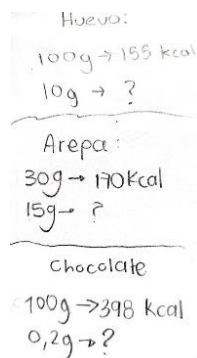 Huevo:
100g → 155 kcal
10g → ?
Arepa:
30g → 170Kcal
15g → ?
Chocolate
100g → 398 Kcal
0,2g → ?